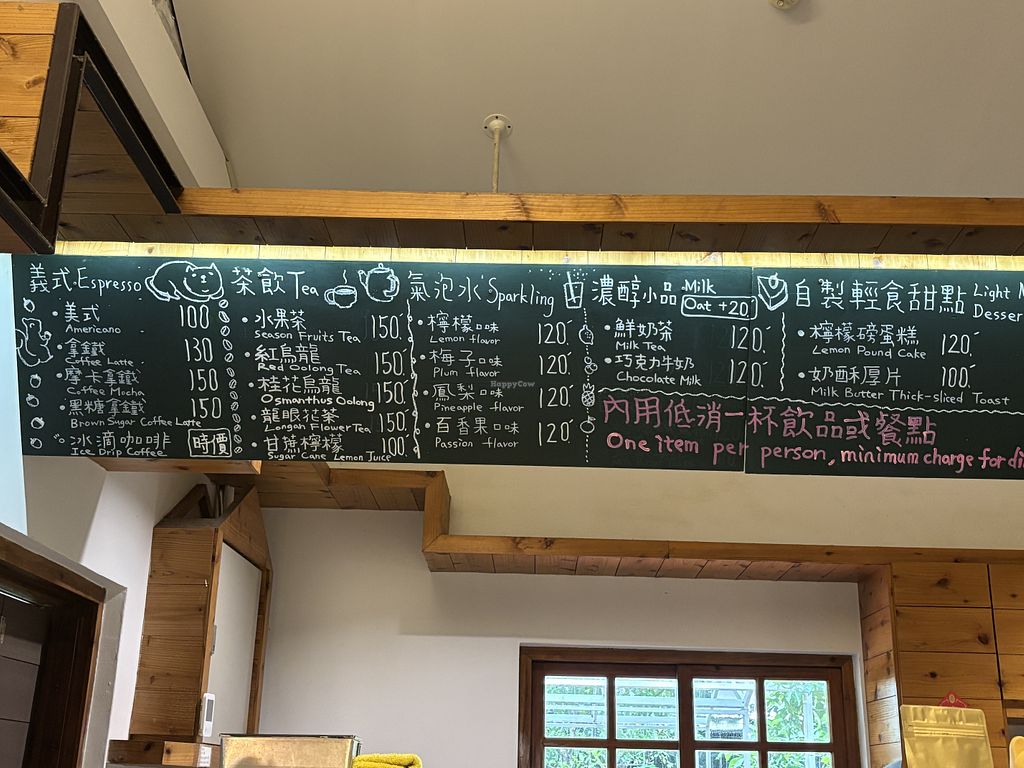 義式.Espresso
美式 100
Americano
拿鐵 130
Coffee Latte
摩卡拿鐵 150
Coffee Mocha
黑糖拿鐵 150
Brown Sugar Coffee Latte
冰滴咖啡 時價
Ice Drip Coffee
茶飲Tea
水果茶 150.
Season Fruits Tea
紅烏龍 150.
Red Oolong Tea
桂花烏龍 150.
Osmanthus Oolong
龍眼花茶 150.
Longan Flower Tea
甘蔗檸檬 100.
Sugar Cane Lemon Juice
氣泡水 Sparkling
檸檬口味 120.
Lemon flavor
梅子口味 120.
Plum flavor
鳳梨口味 120.
Pineapple flavor
百香果口味 120.
Passion flavor
濃醇小品 Milk
Oat +20
鮮奶茶 120.
Milk Tea
巧克力牛奶 120.
Chocolate Milk
自製輕食甜點 Light
Desser
檸檬磅蛋糕 120.
Lemon Pound Cake
奶酥厚片 100.
Milk Butter Thick-sliced Toast
內用低消一杯飲品或餐點
One item per person, minimum charge for di
HappyCow